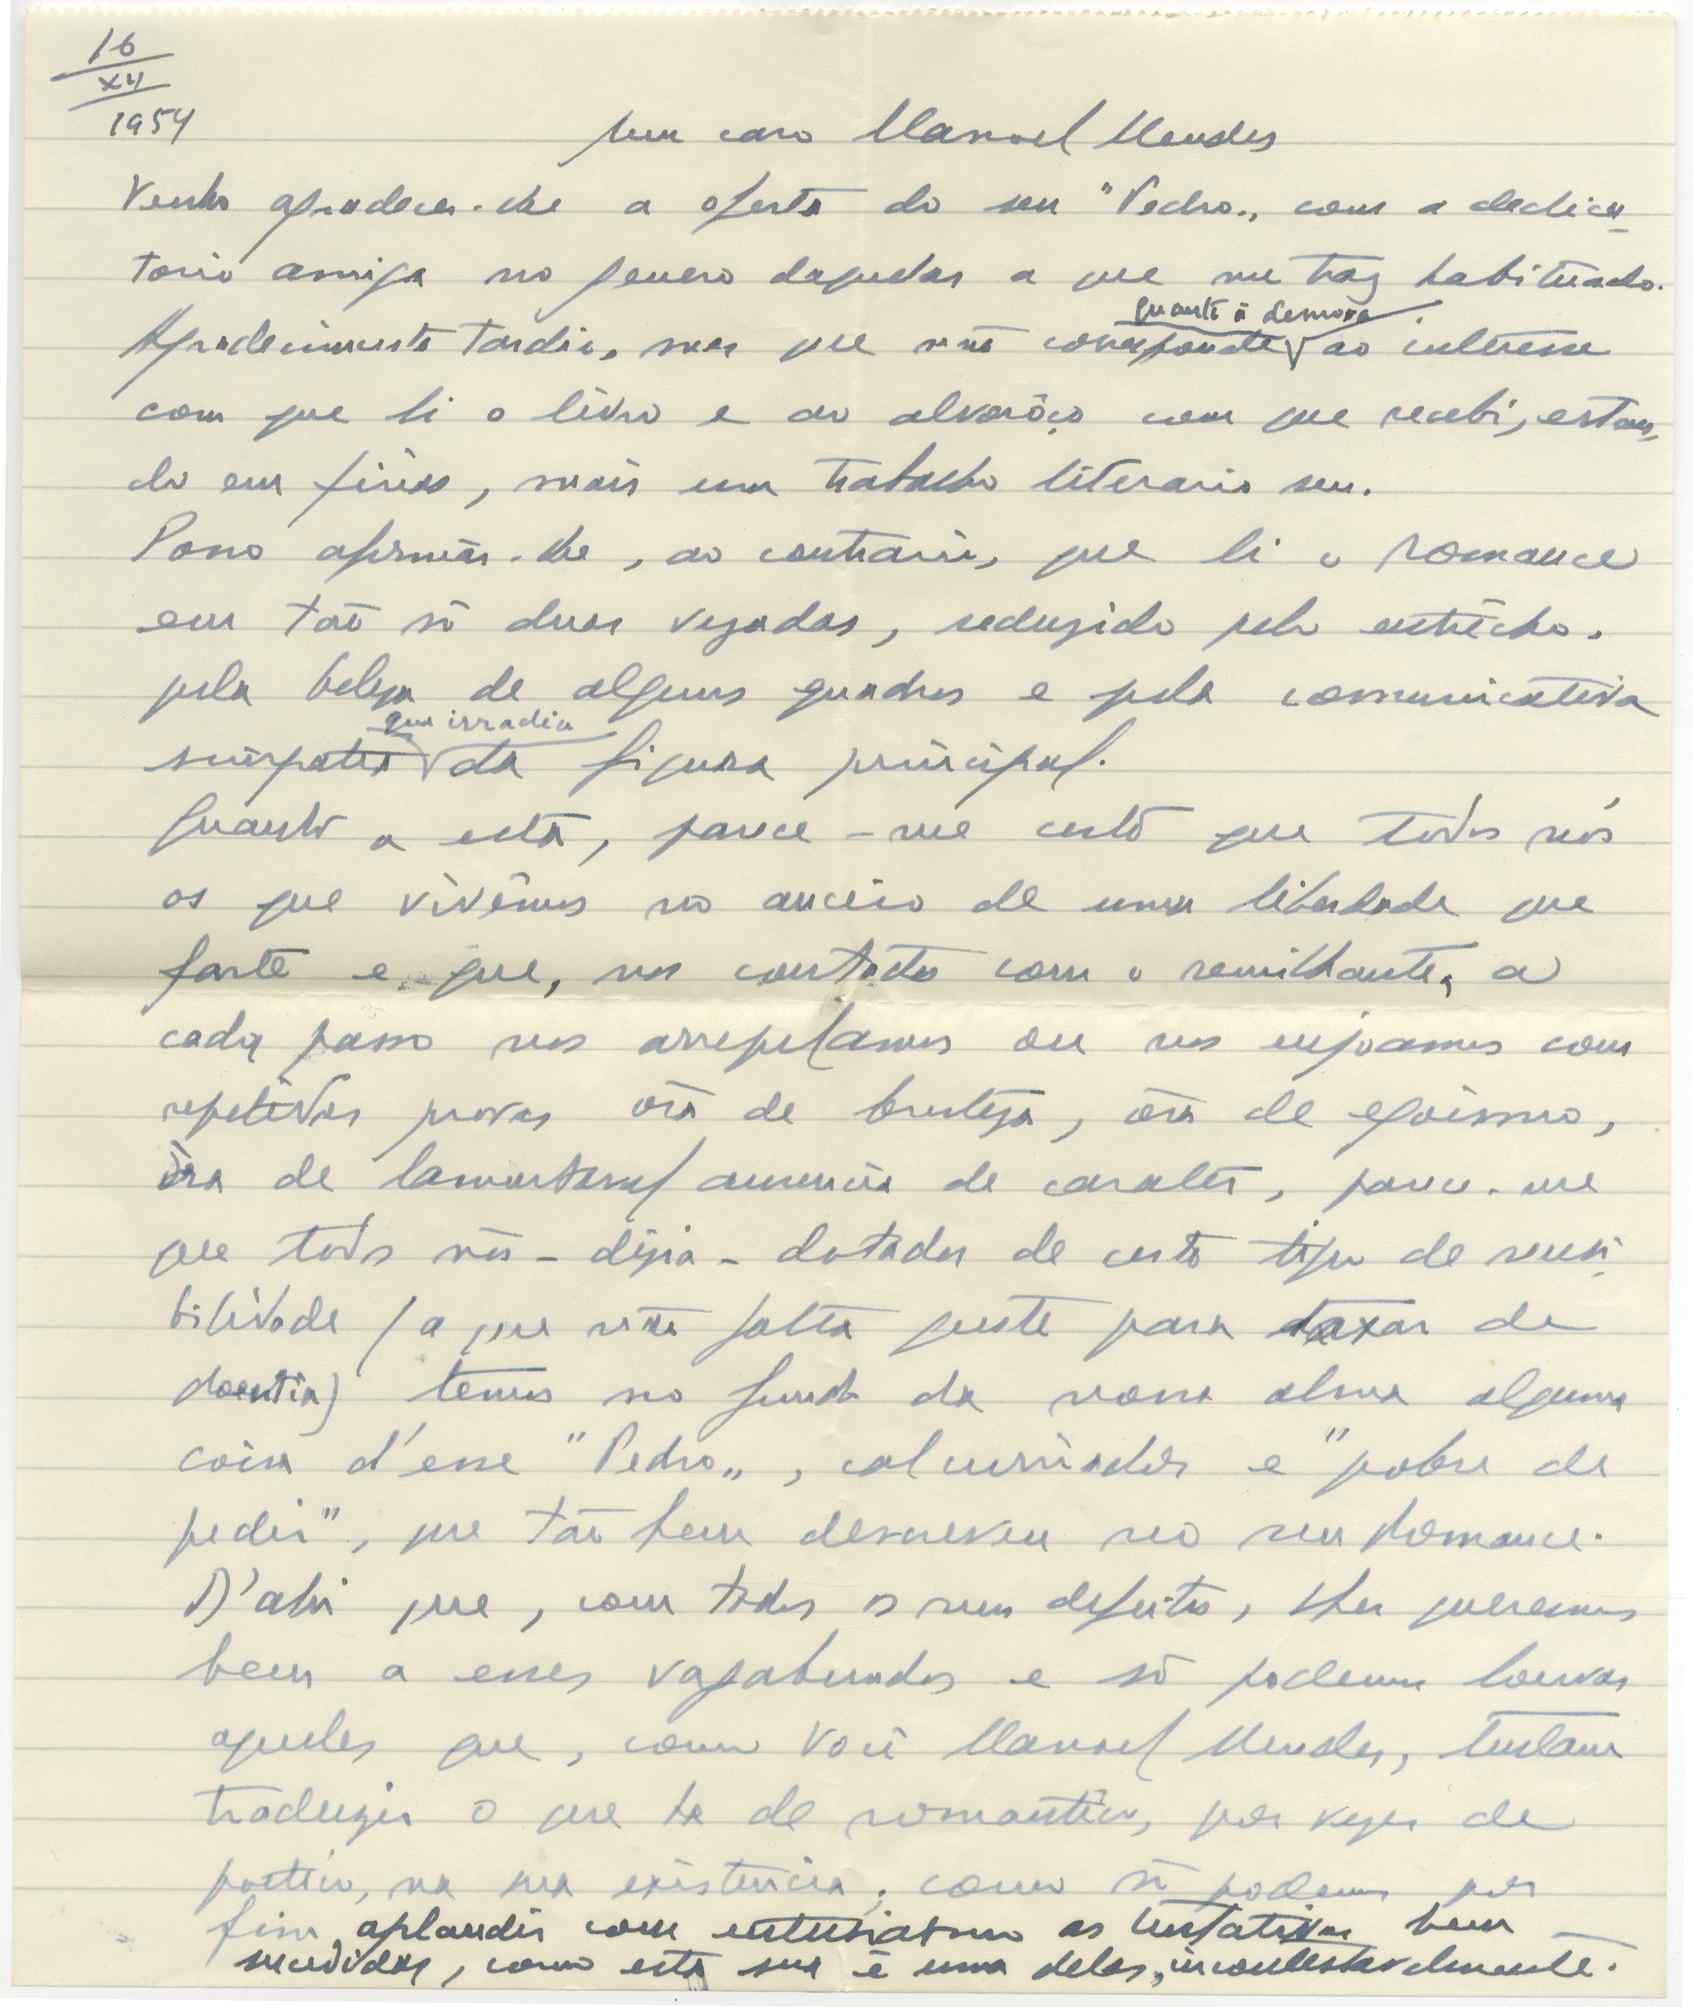 16
XII
1954
Meu caro Manoel Mendes
Venho agradecer-lhe a oferta do seu "Pedro„ com a dedica-
toria amiga no genero daquelas a que me traz habituado.
quanto á demora
Agradecimento tardio, mas que não corresponde ao interesse
com que li o livro e ao alvorôço com que recebi, estan-
do em férias, mais um trabalho literario seu.
Posso afirmar-lhe, ao contrario, que li o romance
em tão só duas vezadas, seduzido pelo entrêcho,
pela beleza de alguns quadros e pela comunicativa
que irradia
simpatia da figura principal.
Quanto a esta, parece-me certo que todos nós
os que vivêmos no anceio de uma liberdade que
farte e que, no contato com o semilhante, a
cada passo nos arrepelamos ou nos enjoamos com
repetidas provas óra de bruteza, óra de egoismo,
óra de lamentavel ausencia de caracter, parece-me
que todos nós - dizia - dotados de certo tipo de sensi-
bilidade (a que não falta gente para taxar de
doentia) temos no fundo da nossa alma alguma
coisa d'esse "Pedro„, calcurriador e "pobre de
pedir", que tão bem descreveu no seu romance.
D'ahi que, com todos os seus defeitos, lhes queremos
bem a esses vagabundos e só podemos louvar
aqueles que, como Você Manoel Mendes, tentam
traduzir o que ha de romantico, por vezes de
poetico, na sua existencia; como só podemos por
fim aplaudir com entusiasmo as tentativas bem
sucedidas, como esta sua é uma delas, incontestavelmente.